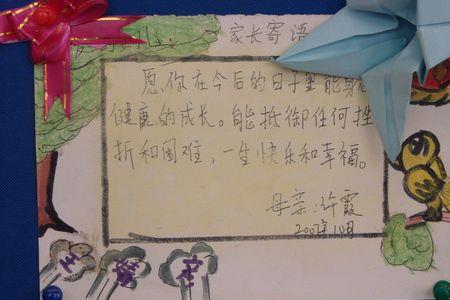 家长寄语
愿你在今后的日子里能身心
健康的成长。能抵御任何挫
折和困难，一生快乐和幸福。
母亲：许霞
2007年10月